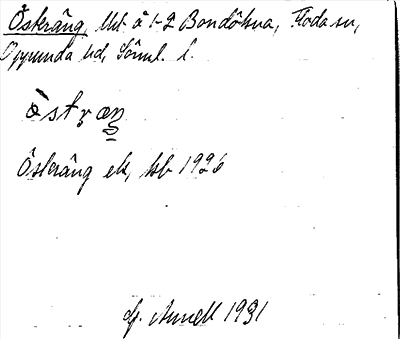 Österäng, lht. å 1-2 Bondökna, Floda sn,
Oppunda hd, Söml. l.
östræŋ
Österäng ek, hb 1926
Af. Annell 1931